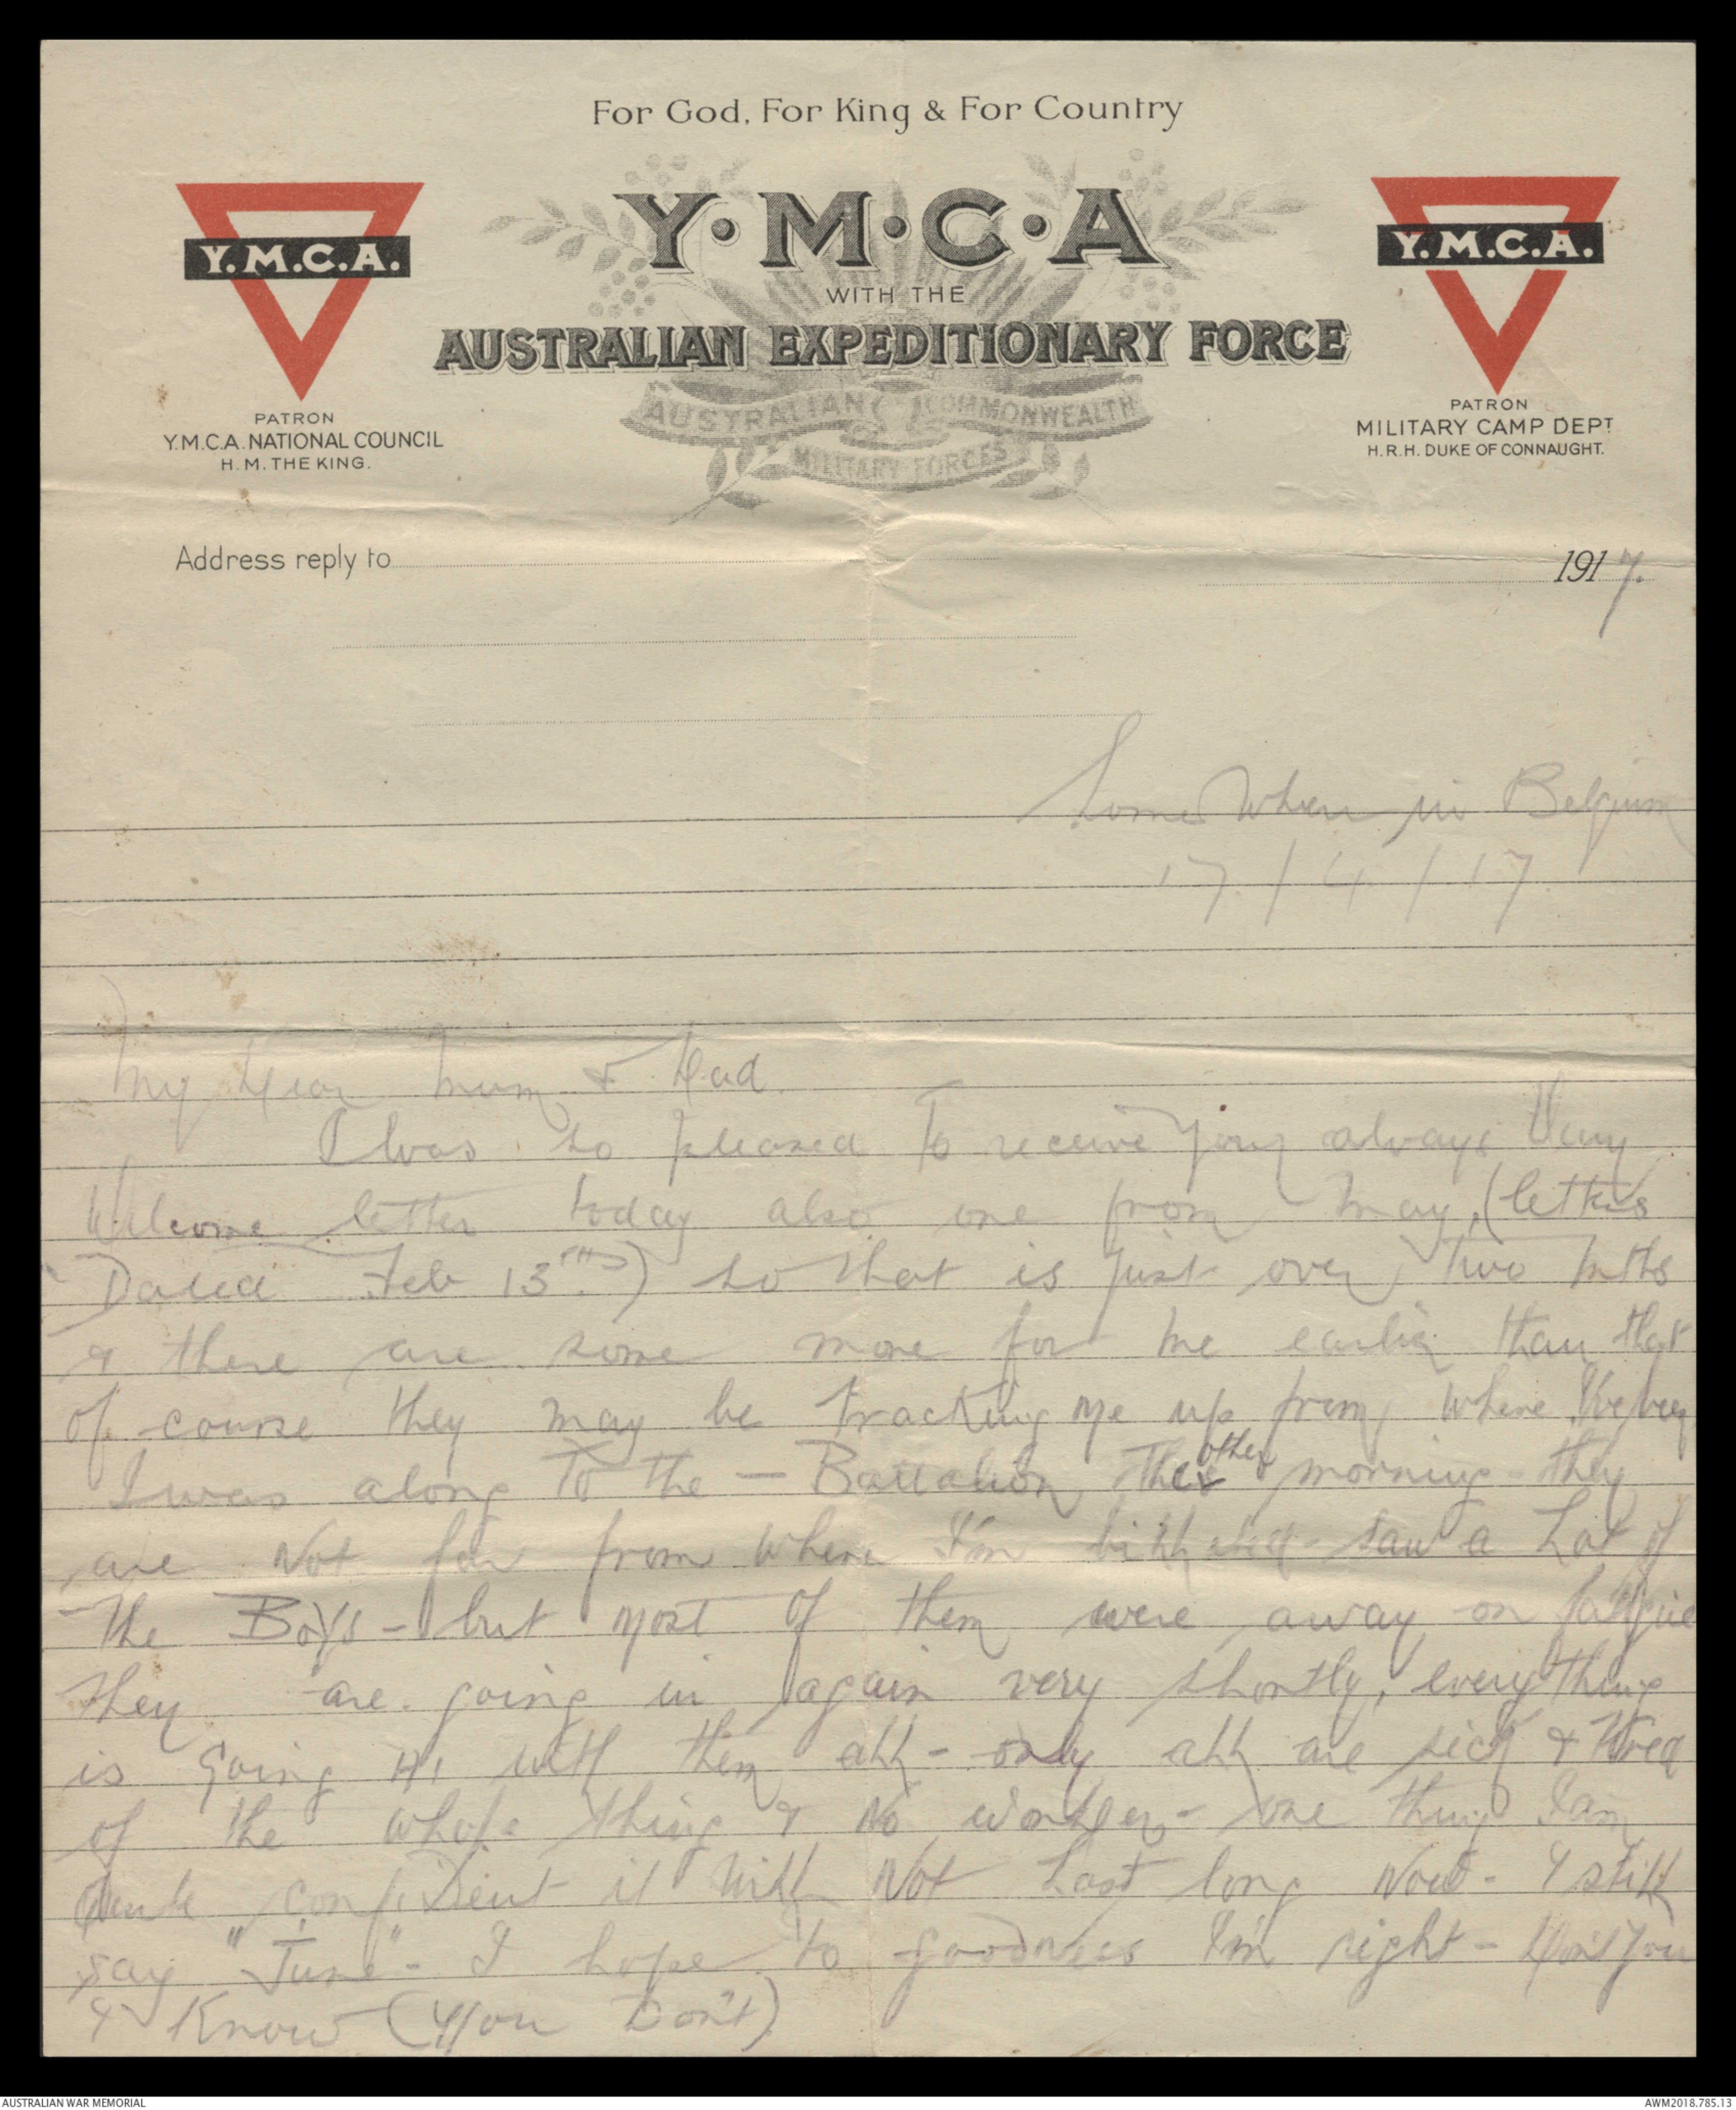 For God, For King & For Country
Y.M.C.A
WITH THE
AUSTRALIAN EXPEDITIONARY FORCE
AUSTRALIAN COMMONWEALTH
MILITARY FORCES
Y.M.C.A.
PATRON
Y.M.C.A. NATIONAL COUNCIL
H.M. THE KING.
Y.M.C.A.
PATRON
MILITARY CAMP DEPT
H.R.H. DUKE OF CONNAUGHT.
Address reply to
1917.
Some Where in Belgium
17/4/17
My Dear Mum & Dad.
I was so pleased to receive your always Very
Welcome letter today also one from May, (letters
Dated Feb 13TH) so that is just over two mths
& there are some more for me earlier than that
of course they may be tracking me up from where I've been
I was along to the — Battalion the other morning - they
are Not far from where I'm billeted - saw a Lot of
the Boys - but most of them were away on fatigue
they are going in again very shortly, everything
is going with them all - only all are sick & tired
of the whole thing & No wonder - one thing I am
quite confident it will Not Last long Now - & still
say "June" - I hope to goodness I'm right - Don't You
& Know (You Don't)
AUSTRALIAN WAR MEMORIAL
AWM2018.785.13